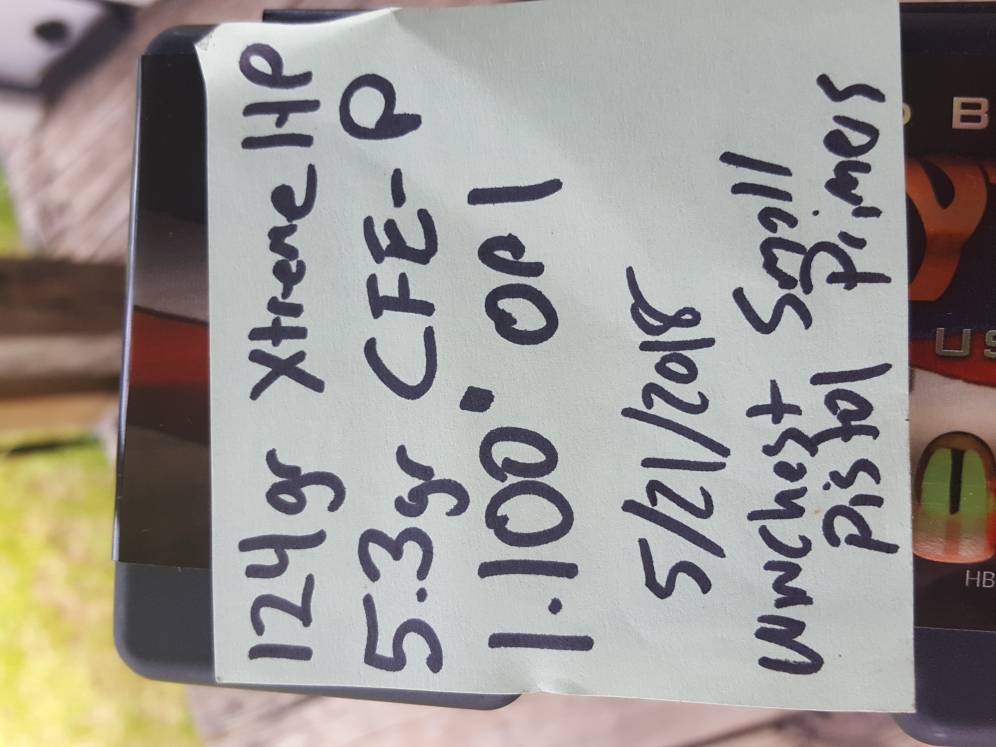 124gr Xtreme HP
5.3gr CFE-P
1.100. OPI
5/21/2018
Wwchest Small
pistol primers
B
US
HB